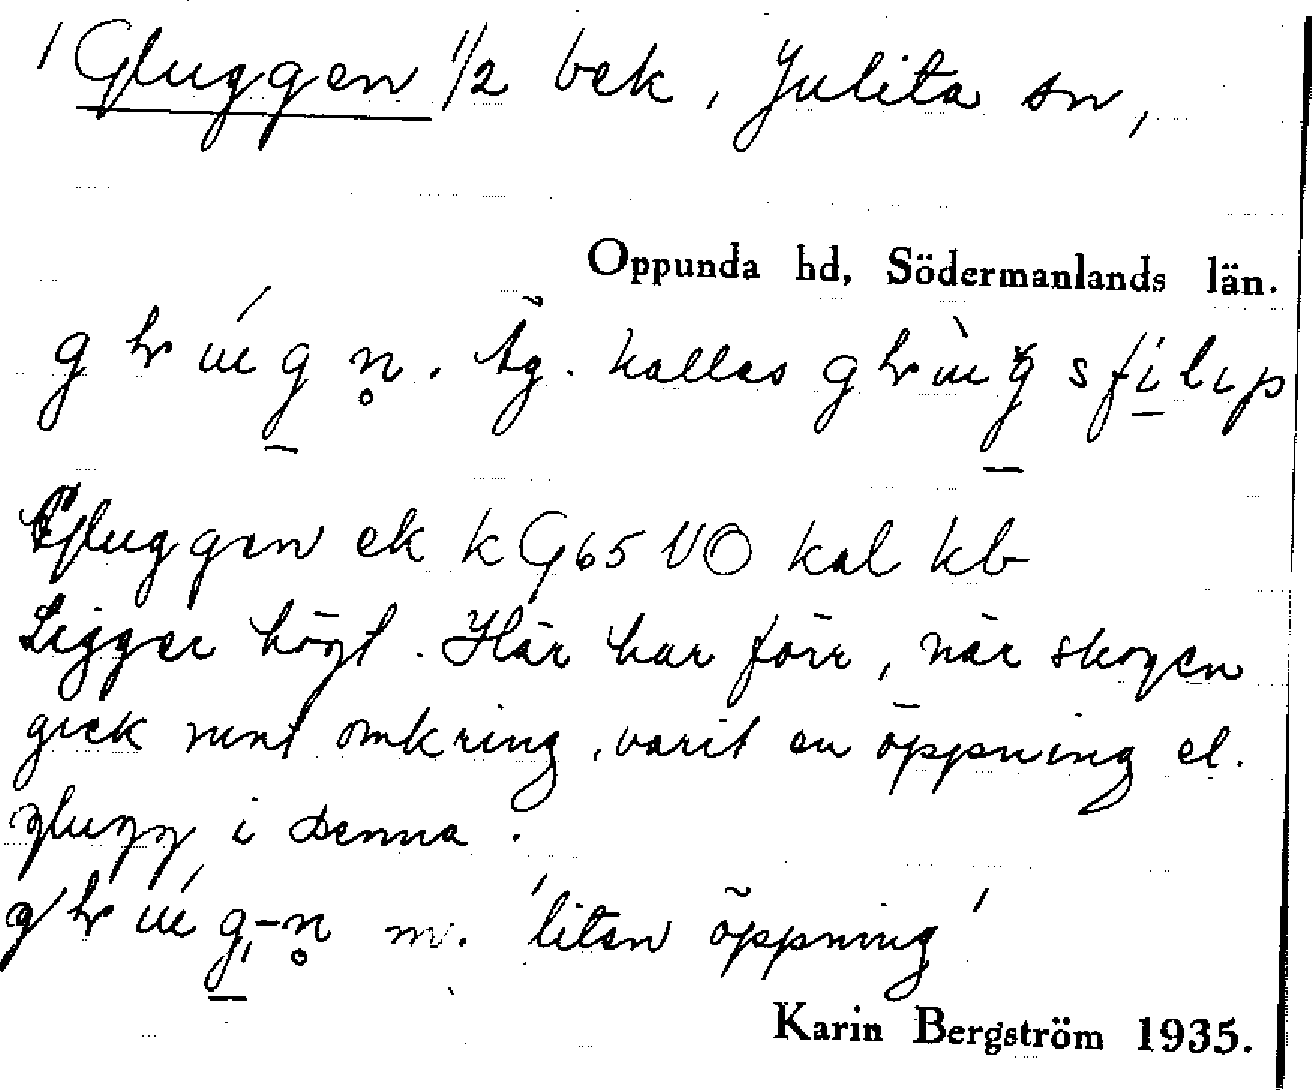 Gluggen 1/2 bek, Julita sn,
Oppunda hd, Södermanlands län.
kallas
Gluggen ek k G65 VO kal kb
Ligger högt. Här har förr, när skogen
gick runt omkring, varit en öppning el.
glugg i denna.
m. 'liten öppning'
Karin Bergström 1935.